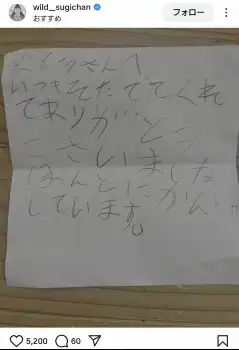 wild__sugichan
おすすめ
フォロー
さんへ
いつもそだててくれ
てありがとう
ございました
ほんとにかん
しています
5,200
60